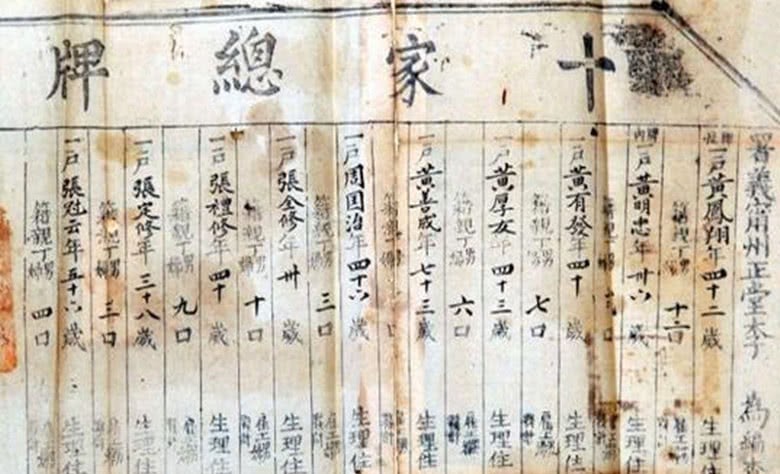 十家總牌
署義甯州正堂李 為編
一戶黃鳳翔年四十二歲 生理住
籍親丁男婦十二口 雇工
一戶黃明忠年卅六歲 生理住
籍親丁男婦 口 雇工
一戶黃有發年四十歲 生理住
籍親丁男婦七口 雇工
一戶黃厚友年四十三歲 生理住
籍親丁男婦六口 雇工
一戶黃善成年七十三歲 生理住
籍親丁男婦 口
一戶周国治年四十六歲 生理住
籍親丁男婦三口 雇工
一戶張全修年卅歲 生理住
籍親丁男婦十口 雇工
一戶張禮修年四十歲 生理住
籍親丁男婦九口 雇工
一戶張定修年三十八歲 生理住
籍親丁男婦三口 雇工
一戶張冠云年五十六歲 生理住
籍親丁男婦四口